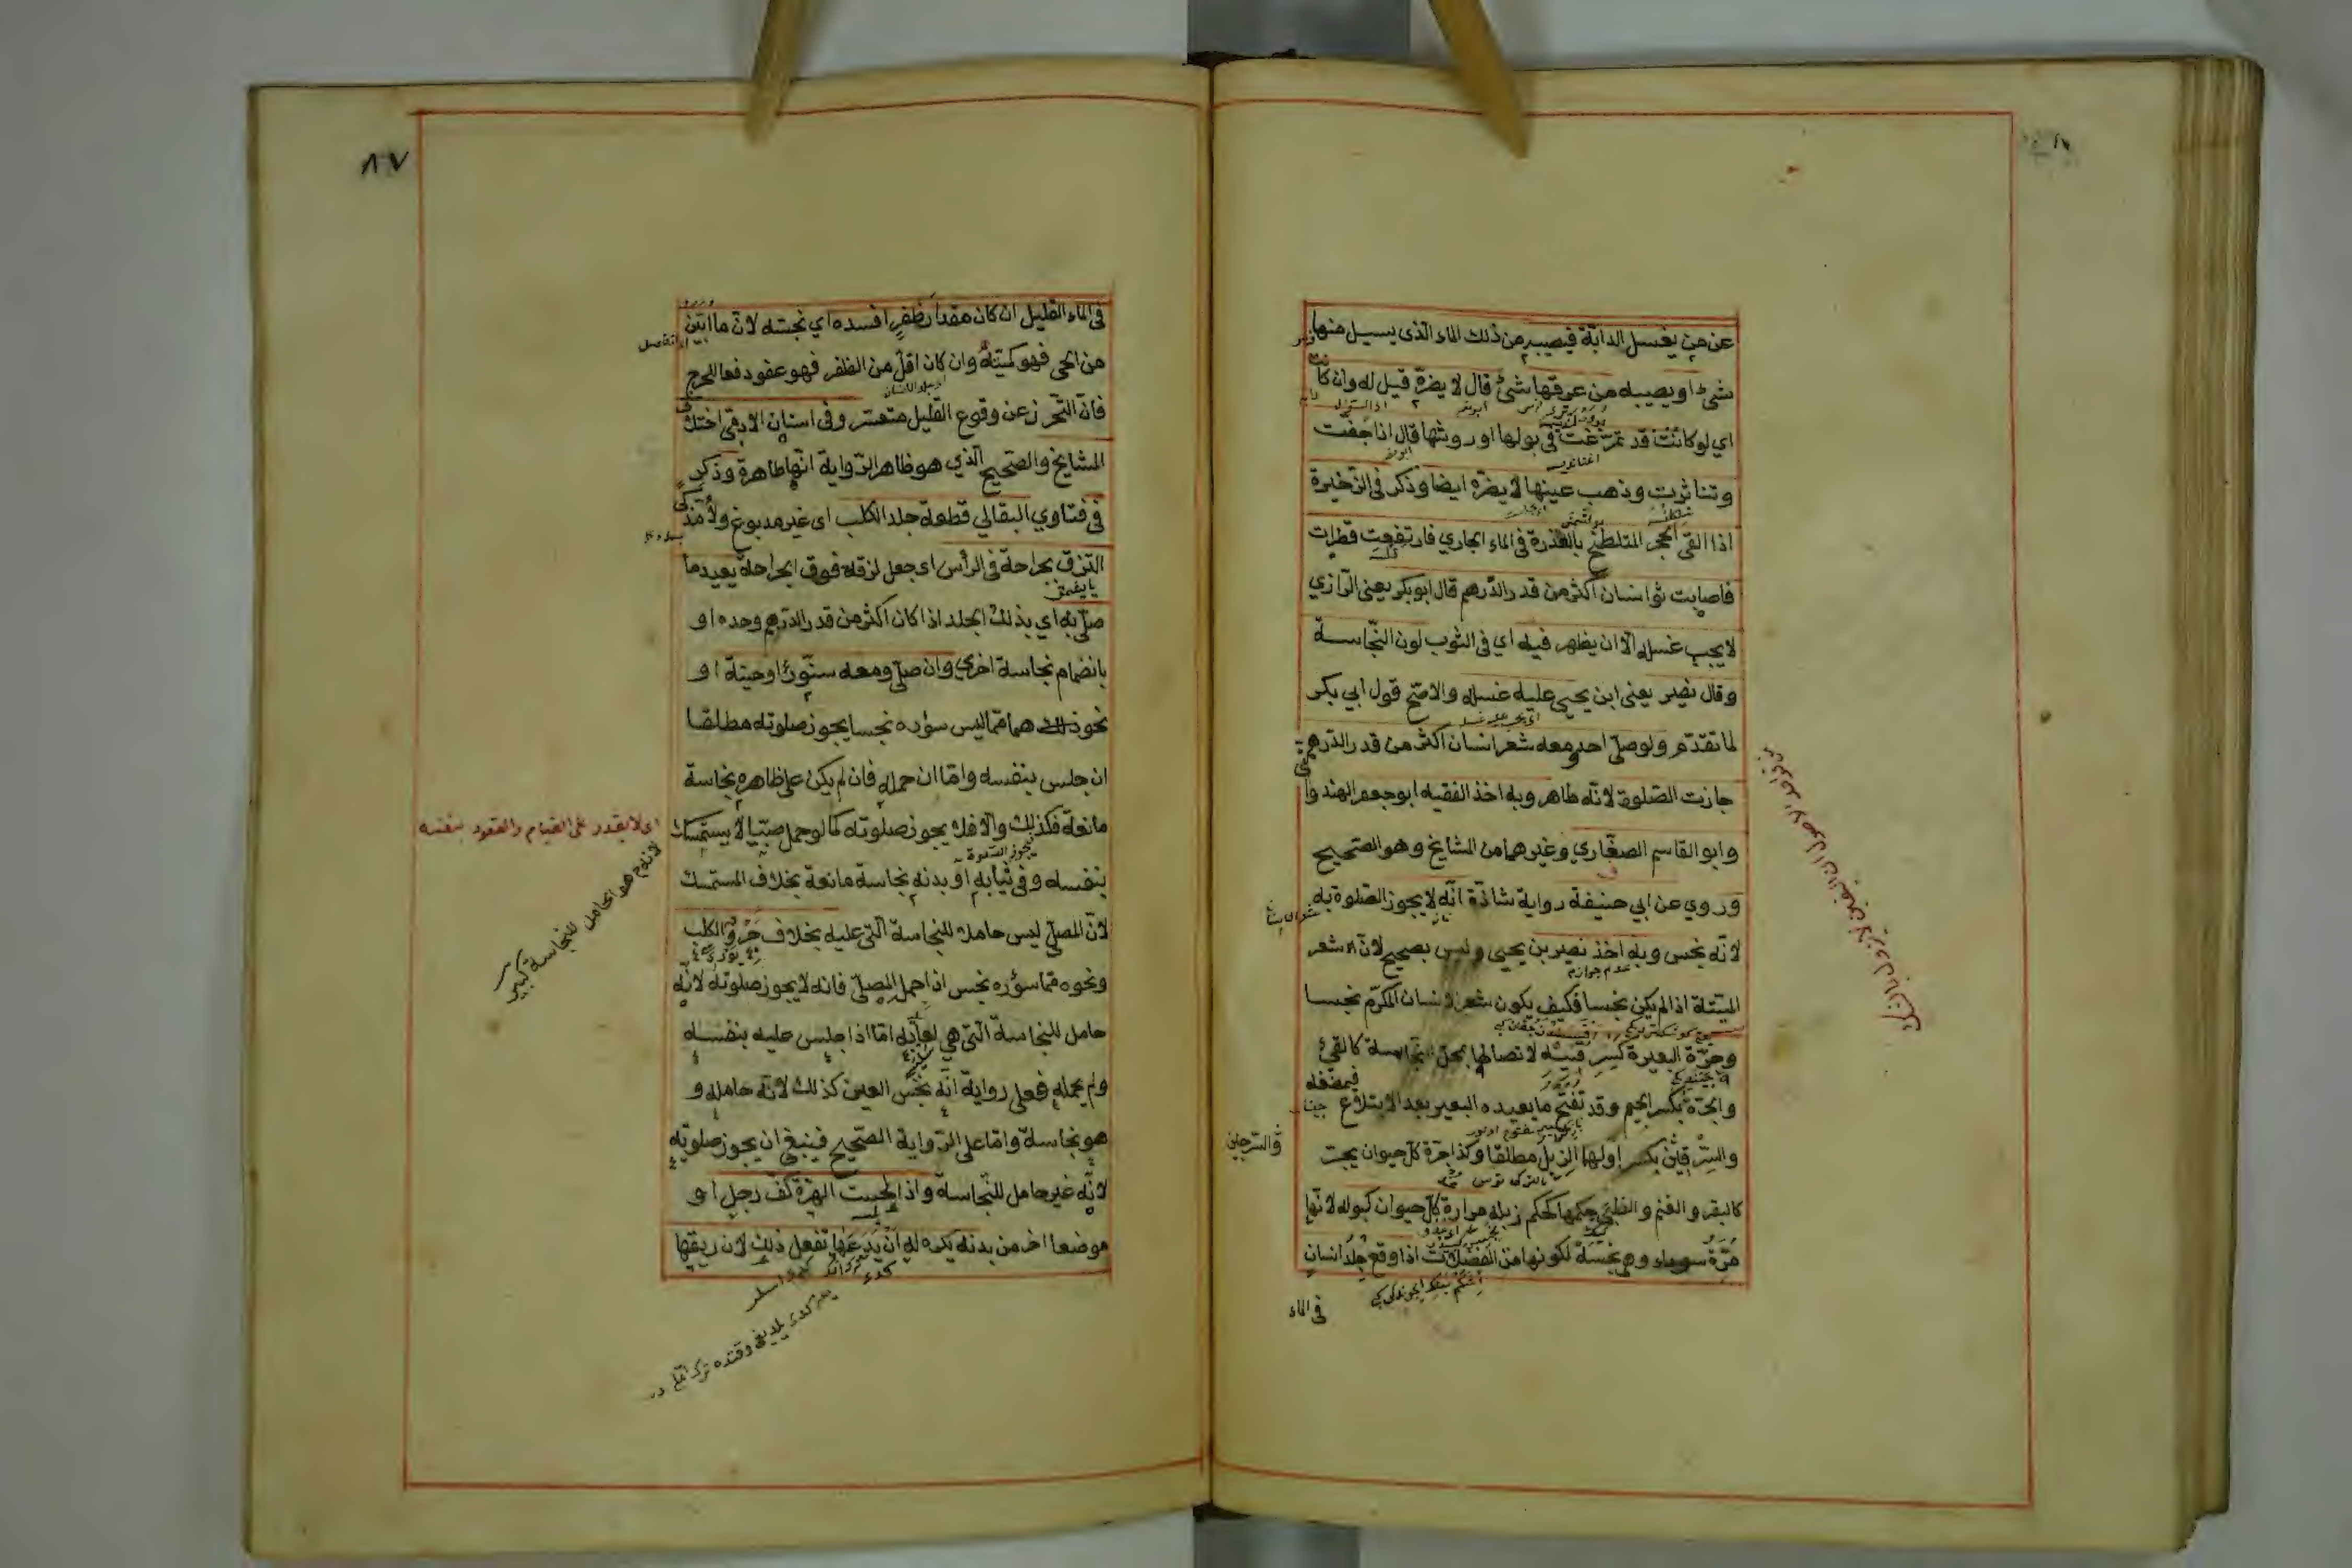 عن من يغسل الدابّة فيصيبه من ذلك الماء الذى يسيل منها
شئ او يصيبه من عرقها شئ قال لا يضرّه قيل له وان كانت
اي لو كانت قد تمرّغت في بولها او روثها قال اذا جفّت
وتناثرت وذهب عينها لا يضرّه ايضا وذكر فى الذخيرة
اذا القى الحجر المتلطّخ بالعذرة فى الماء الجاري فارتفعت قطرات
فاصابت ثوب انسان اكثر من قدر الدّرهم قال ابو بكر يعنى الرّازي
لا يجب غسله الّا ان يظهر فيه اي فى الثوب لون النّجاسة
وقال نصير يعنى ابن يحيى عليه غسله والاصحّ قول ابي بكر
لما تقدّم ولو صلّى احد ومعه شعر انسان اكثر من قدر الدّرهم
جازت الصّلوة لانّه طاهر وبه اخذ الفقيه ابو جعفر الهندوانى
وابو القاسم الصفّاري وغيرهما من المشايخ وهو الصحيح
وروي عن ابي حنيفة رواية شاذّة انّه لا يجوز الصّلوة به
لانّه نجس وبه اخذ نصير بن يحيى وليس بصحيح لانّ شعر
الميتة اذا لم يكن نجسا فكيف يكون شعر الانسان المكرّم نجسا
وجرّة البعيرة كسرقينه لاتصالها بمحلّ النجاسة كالقئ
والجرّة بكسر الجيم وقد تفتح ما يعيده البعير بعد الابتلاع
فيمضغه
والسّرقين بكسر اولهما الزبل مطلقا وكذا جرّة كلّ حيوان يجترّ
والسّرجين
كالبقر والغنم والظبى حكمها كحكم زبله مرارة كلّ حيوان كبوله لانّها
مرّة سوداء وهى نجسة لكونها من الفضلات اذا وقع جلد انسان
فى الماء
٨٧
فى الماء القليل ان كان مقدار ظفر افسده اي نجّسه لانّ ما ابين
من الحى فهو كميتة وان كان اقلّ من الظفر فهو عفو دفعا للحرج
فانّ التّحرّز عن وقوع القليل متعسّر وفى اسنان الادمىّ اختلف
المشايخ والصّحيح الّذي هو ظاهر الرّواية انّها طاهرة وذكر
فى فتاوي البقالي قطعة جلد الكلب اى غير مدبوغ ولا مذكّى
التزق بجراحة فى الرأس اى جعل لزقة فوق الجراحة يعيد ما
صلّى به اي بذلك الجلد اذا كان اكثر من قدر الدّرهم وحده او
بانضمام نجاسة اخرى وان صلّى ومعه سنّور او حيّة او
نحو ذلك هما ممّا ليس سؤره نجسا يجوز صلوته مطلقا
ان جلس بنفسه وامّا ان حمله فان لم يكن على ظاهره نجاسة
مانعة فكذلك والّا فلا يجوز صلوته كما لو حمل صبيّا لا يستمسك
بنفسه وفى ثيابه او بدنه نجاسة مانعة بخلاف المستمسك
لانّ المصلّى ليس حاملا للنجاسة الّتى عليه بخلاف جرو الكلب
ونحوه ممّا سؤره نجس اذا حمل المصلّى فانه لا يجوز صلوته لانّه
حامل للنجاسة الّتى هي لعابه امّا اذا جلس عليه بنفسه
ولم يحمله فعلى رواية انّه نجس العين كذلك لانّه حامله و
هو نجاسة وامّا على الرّواية الصّحيح فينبغى ان يجوز صلوته
لانّه غير حامل للنّجاسة واذا لحست الهرّة كفّ رجل او
موضعا اخر من بدنه يكره له ان يدعها تفعل ذلك لان ريقها
اى لا يقدر على القيام والقعود بنفسه
هو الحامل للنجاسة كبير